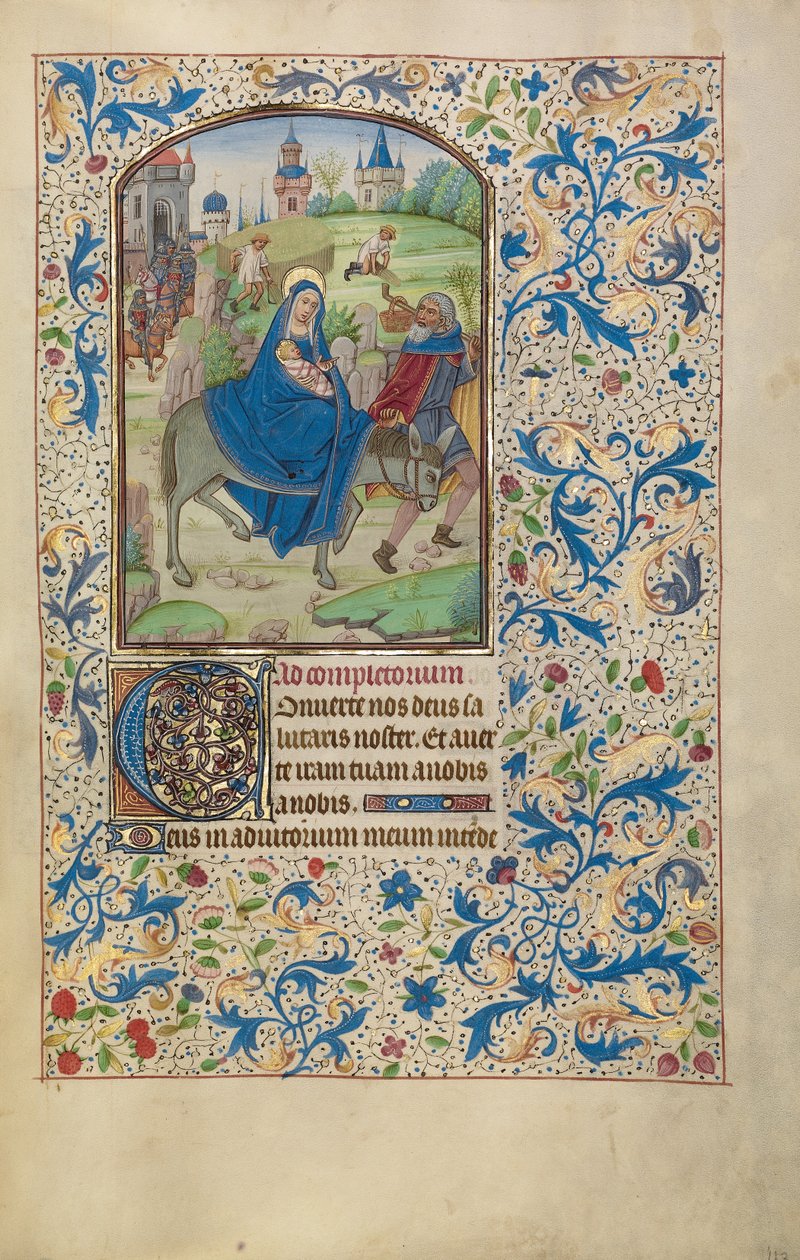 Ad completorium
Conuerte nos deus sa
lutaris noster. Et auer
te iram tuam a nobis
a nobis.
Deus in adiutorium meum intēde